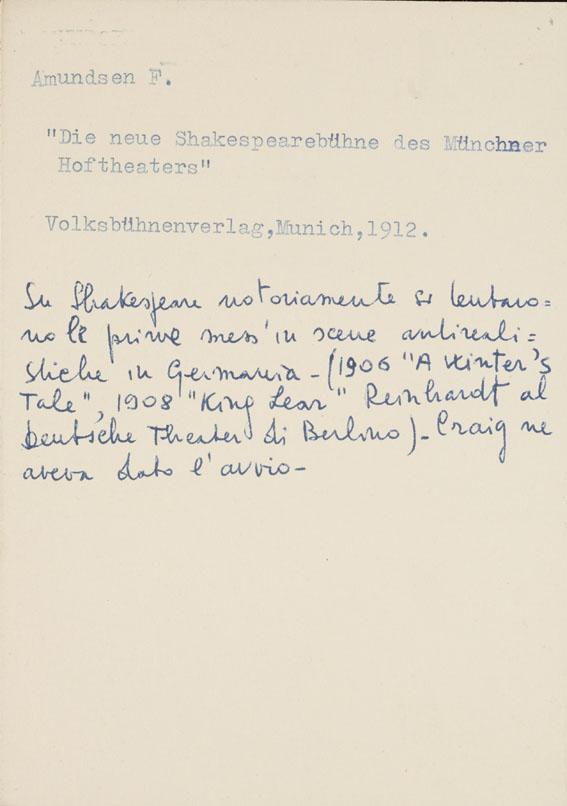 Amundsen F.
"Die neue Shakespearebühne des Münchner
Hoftheaters"
Volksbühnenverlag,Munich,1912.
Su Shakespeare notoriamente si tentaro=
no le prime mess'in scene antireali=
stiche in Germania - (1906 "A Winter's
Tale", 1908 "King Lear" Reinhardt al
Deutsche Theater di Berlino) - Craig ne
aveva dato l'avvio -